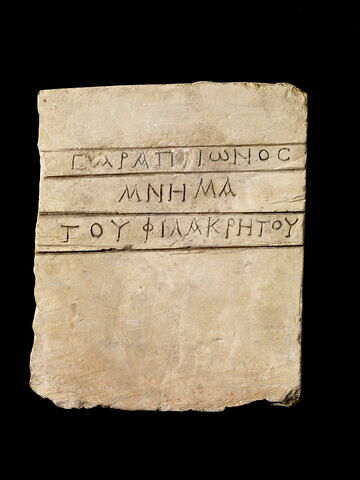 ϹΑΡΑΠΙΩΝΟϹ
ΜΝΗΜΑ
ΤΟΥΦΙΛΑΚΡΗΤΟΥ